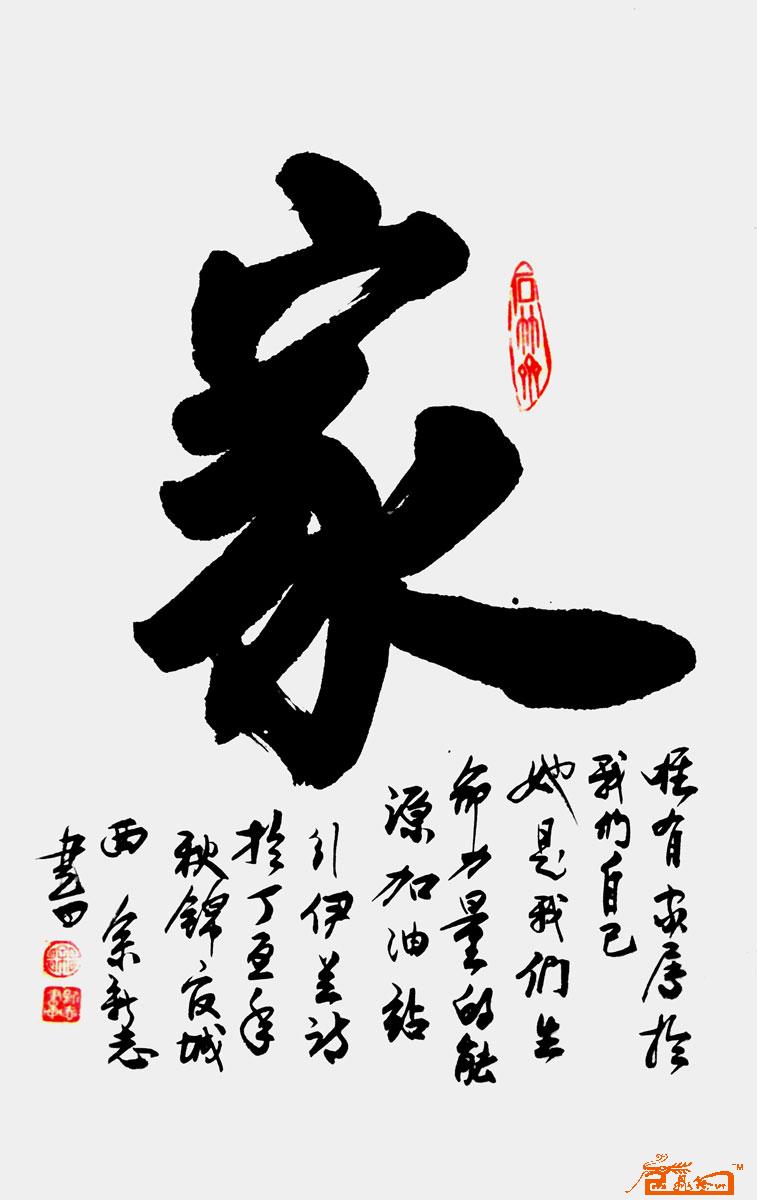 家
唯有家属於
我们自己
她是我们生
命力量的能
源加油站
引伊兰诗
於丁亥年
秋锦官城
西 余新志
书